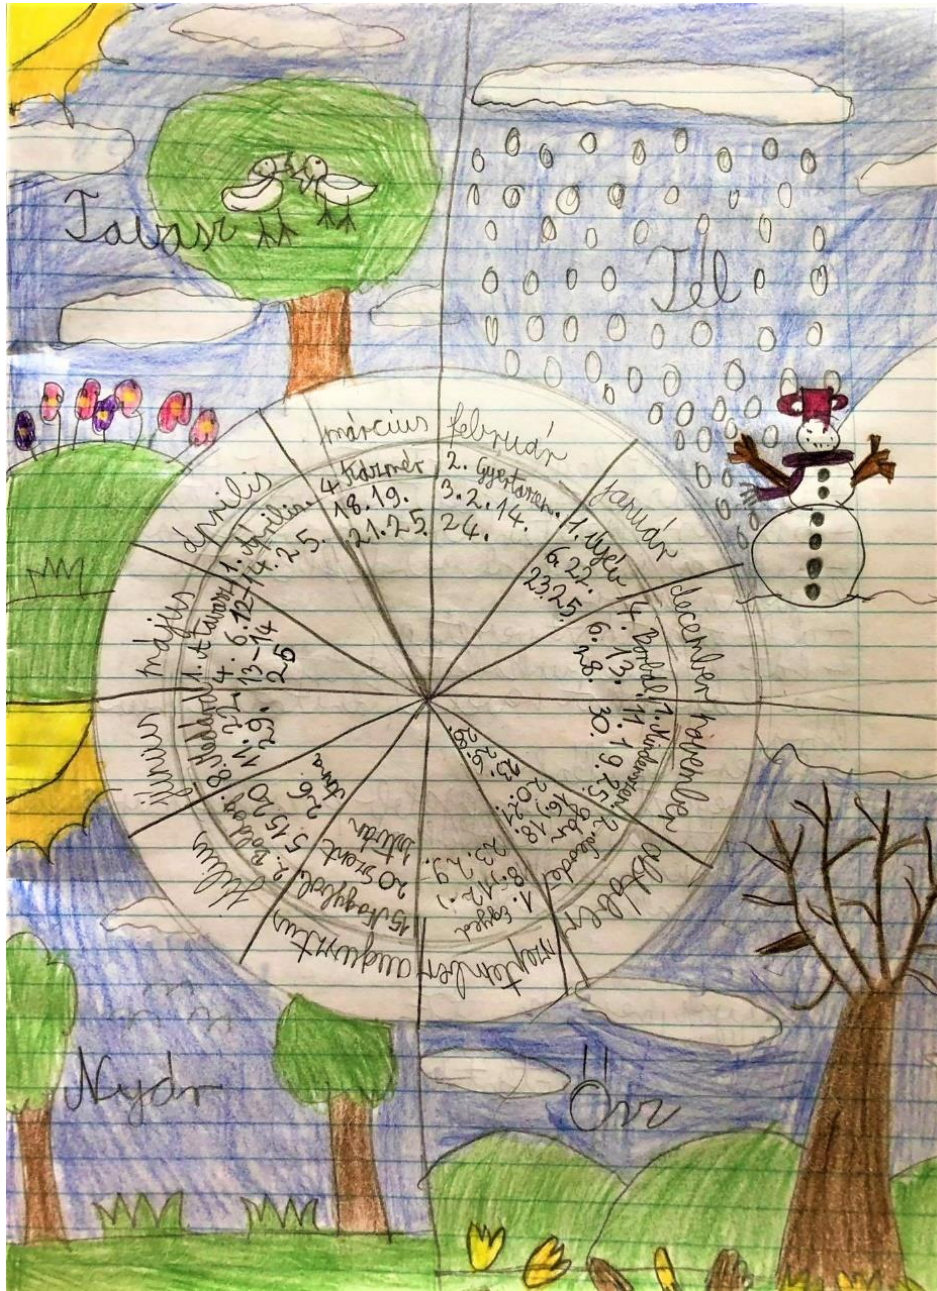 Tavasz
Tél
március
4. Kázmér
18. 19.
21. 25.
február
2. Gyertyaszen.
3. 2. 14.
24.
január
1. Újév
6. 22.
23. 25.
december
4. Borbál.
6. 13.
28.
november
1. Mindenszen.
11. 19. 25.
30.
október
szeptember
1. Egyed
8. 12.
23. 29.
augusztus
15. Nagybold.
20 Szent
István
Július
2. Boldog.
5. 15. 20
26.
Anna
június
8. Medárd
11. 22.
29.
május
4. 6. 12-
13-14
25
április
1. Április.
14. 25.
Nyár
Ősz